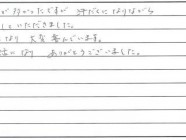 が分かったですが 汗だくになりながら
していただきました。
なり 大変喜んでいます。
になり ありがとうございました。